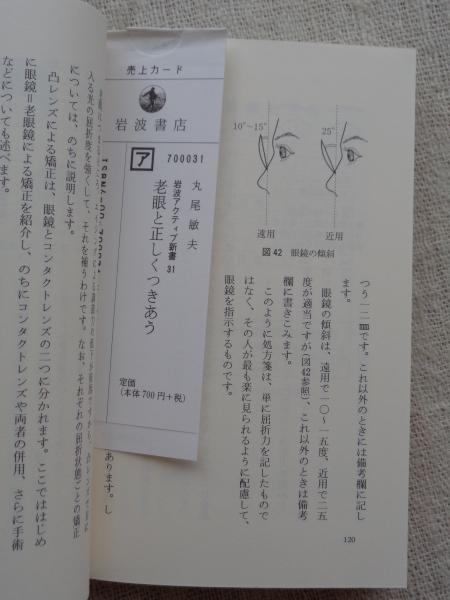 つう一二㎜です。これ以外のときには備考欄に記し
ます。
眼鏡の傾斜は、遠用で一〇～一五度、近用で二五
度が適当ですが(図42参照)、これ以外のときは備考
欄に書きこみます。
このように処方箋は、単に屈折力を記したもので
はなく、その人が最も楽に見られるように配慮して、
眼鏡を指示するものです。
10°~15°
25°
遠用
近用
図42 眼鏡の傾斜
120
売上カード
岩波書店
ア
700031
丸尾敏夫
岩波アクティブ新書 31
老眼と正しくつきあう
定価
(本体 700円+税)
あります。し
入る光の屈折度を強くして、それを補うわけです。なお、それぞれの屈折状態ごとの矯正
については、のちに説明します。
凸レンズによる矯正は、眼鏡とコンタクトレンズの二つに分かれます。ここでははじめ
に眼鏡＝老眼鏡による矯正を紹介し、のちにコンタクトレンズや両者の併用、さらに手術
などについても述べます。